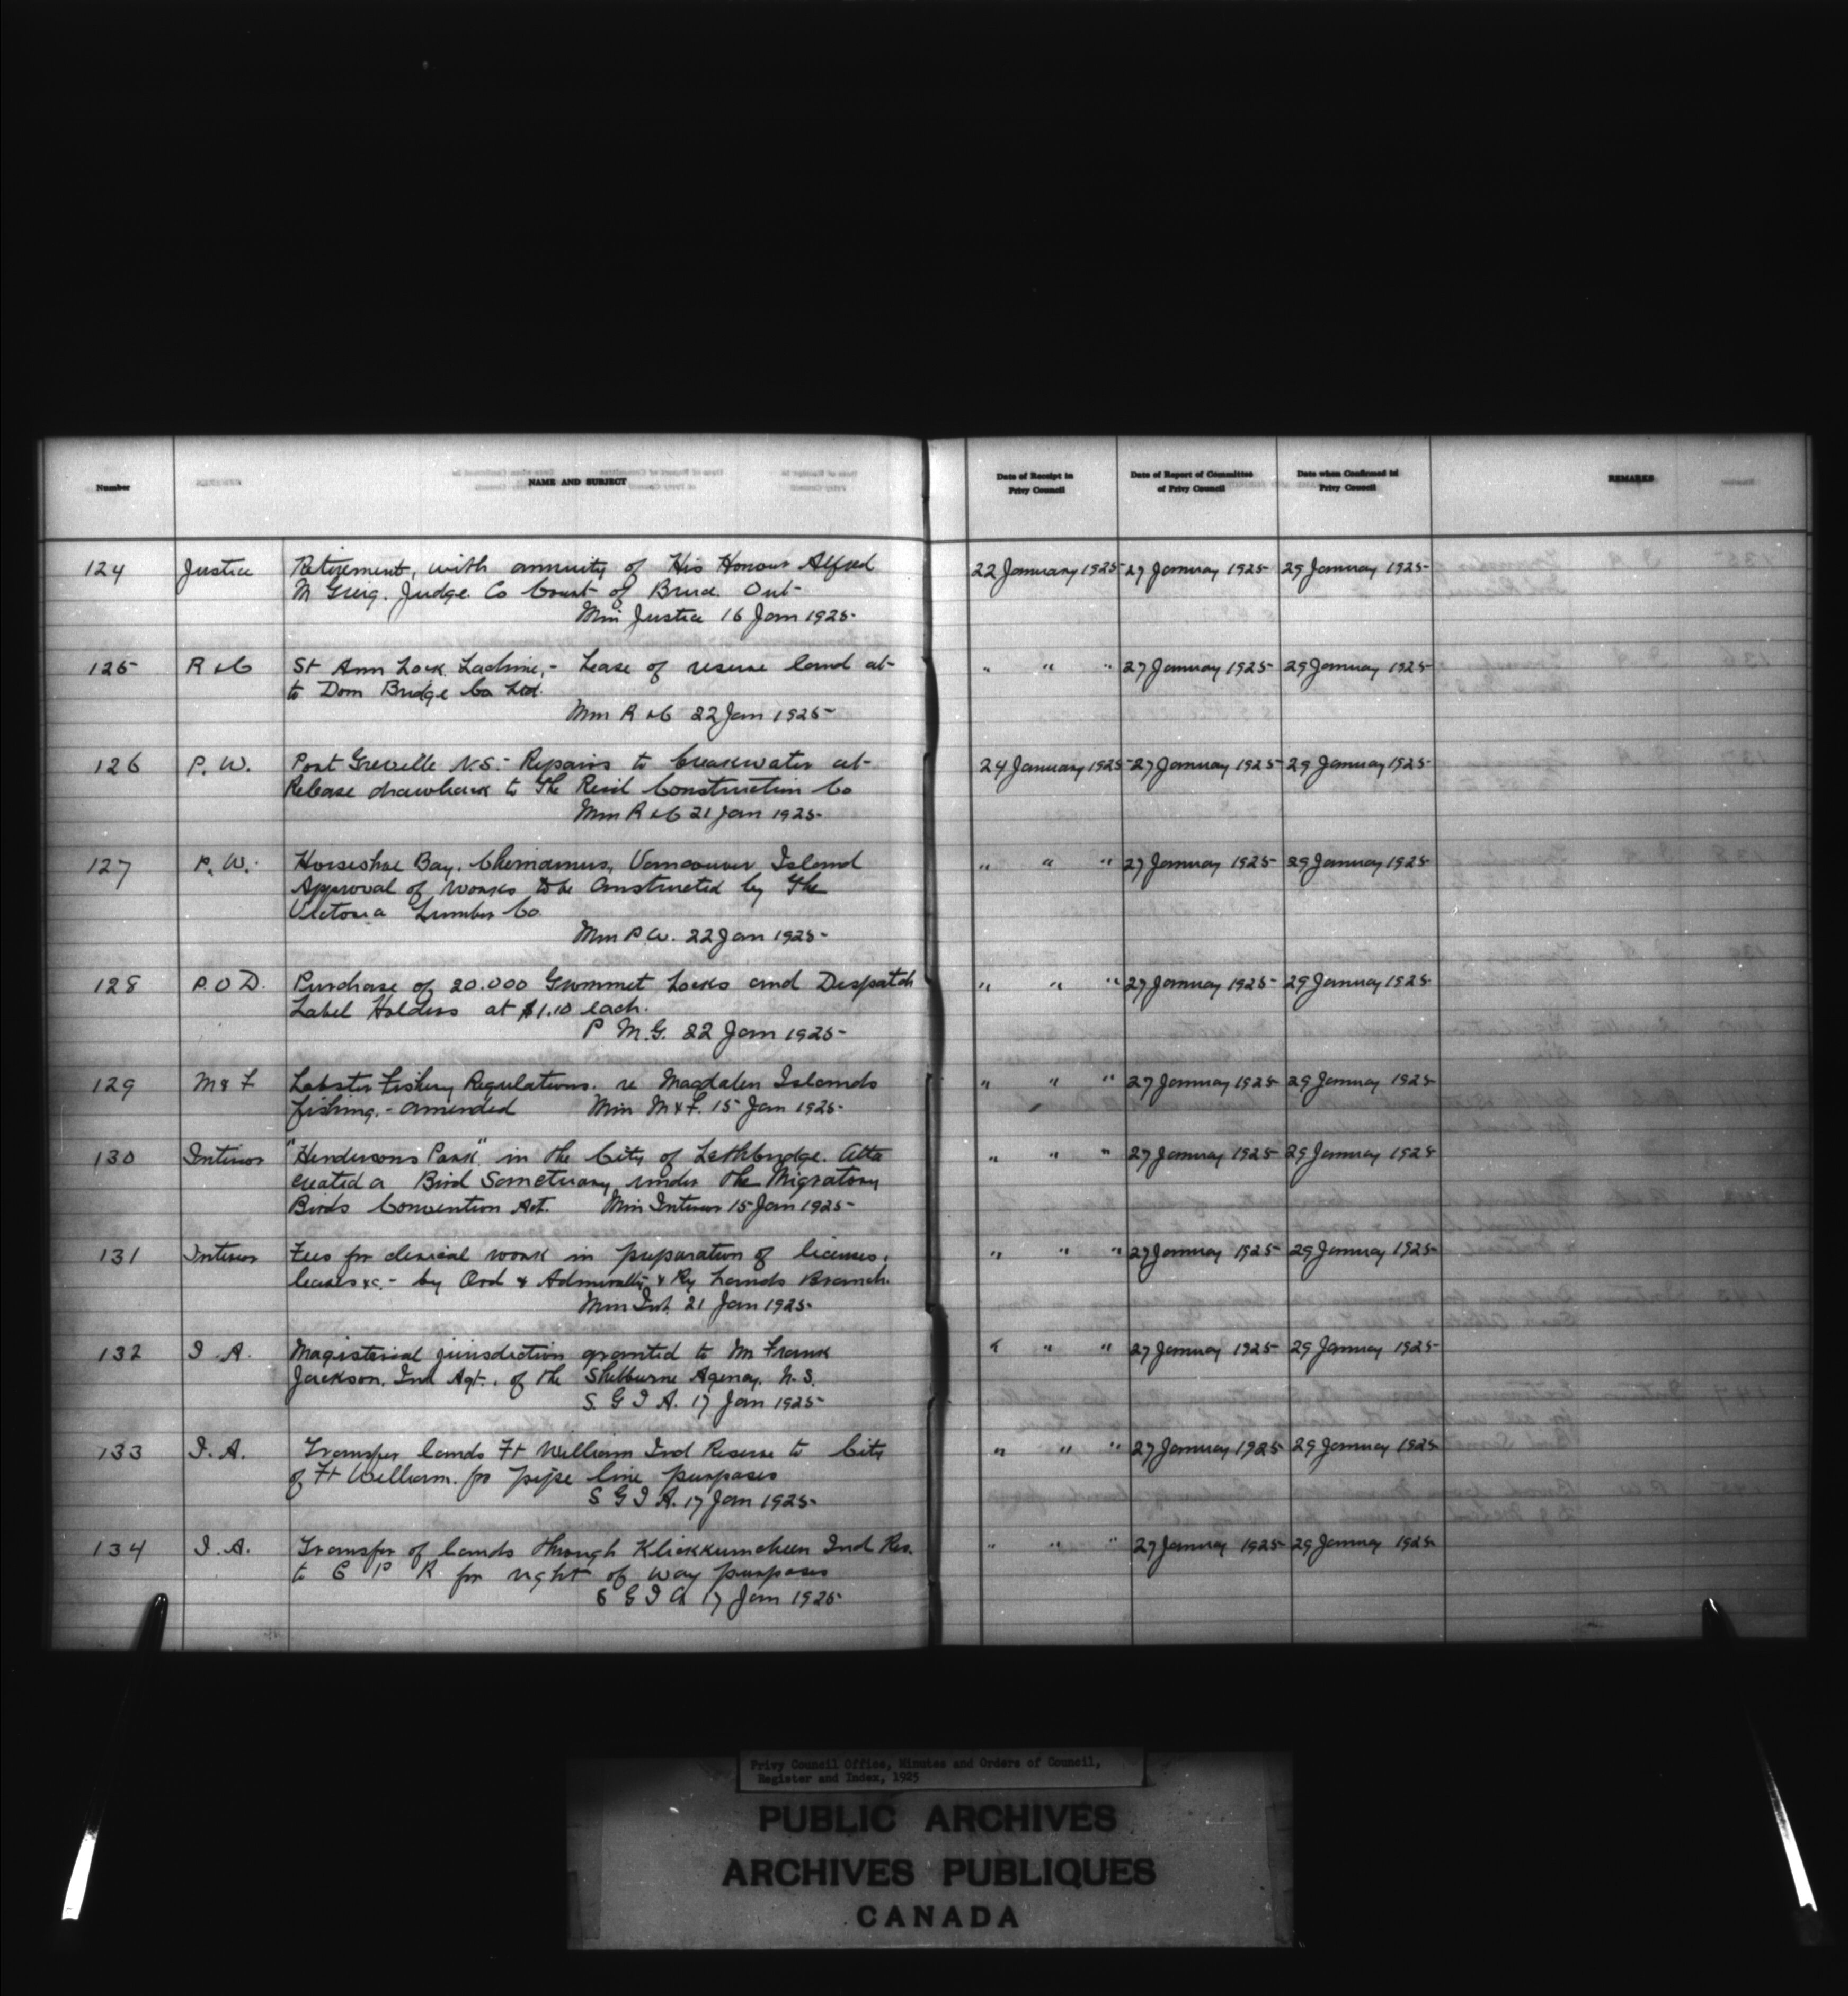 Number
NAME AND SUBJECT
Date of Receipt in
Privy Council
Date of Report of Committee
of Privy Council
Date when Confirmed in
Privy Council
REMARKS
124 Justice Retirement, with annuity of His Honour Alfred 22 January 1925 27 January 1925 29 January 1925
M Greig. Judge. Co Court of Bruce. Ont
Min Justice 16 Jan 1925
125 R & C St Ann Lock Lachine, - Lease of reserve land at " " " 27 January 1925 29 January 1925
to Dom Bridge Co Ltd.
Min R & C 22 Jan 1925
126 P. W. Port Greville N.S. - Repairs to breakwater at 24 January 1925 27 January 1925 29 January 1925
Release drawback to the Reid Construction Co
Min R & C 21 Jan 1925
127 P. W. Horseshoe Bay. Chemainus, Vancouver Island " " " 27 January 1925 29 January 1925
Approval of works to be constructed by the
Victoria Lumber Co
Min P.W. 22 Jan 1925
128 P.O D. Purchase of 20.000 Grummet Locks and Despatch " " " 27 January 1925 29 January 1925
Label Holders at $1.10 each.
P M.G. 22 Jan 1925
129 M & F Lobster Fishery Regulations. re Magdalen Islands " " " 27 January 1925 29 January 1925
fishing. - amended Min M & F. 15 Jan 1925
130 Interior "Hendersons Park" in the City of Lethbridge. Alta " " " 27 January 1925 29 January 1925
created a Bird Sanctuary under the Migratory
Birds Convention Act. Min Interior 15 Jan 1925
131 Interior Fees for clerical work in preparation of licenses, " " " 27 January 1925 29 January 1925
leases &c. - by Ord & Admiralty & Ry Lands Branch.
Min Int. 21 Jan 1925
132 I. A. Magisterial jurisdiction granted to Mr Frank " " " 27 January 1925 29 January 1925
Jackson, Ind Agt., of the Shelburne Agency. N. S.
S. G I A. 17 Jan 1925
133 I. A. Transfer lands Ft William Ind Reserve to City " " " 27 January 1925 29 January 1925
of Ft William. for pipe line purposes
S G I A. 17 Jan 1925
134 I. A. Transfer of lands through Klickkumcheen Ind Res. " " " 27 January 1925 29 January 1925
to C P R for right of way purposes
S G I A 17 Jan 1925
Privy Council Office, Minutes and Orders of Council,
Register and Index, 1925
PUBLIC ARCHIVES
ARCHIVES PUBLIQUES
CANADA